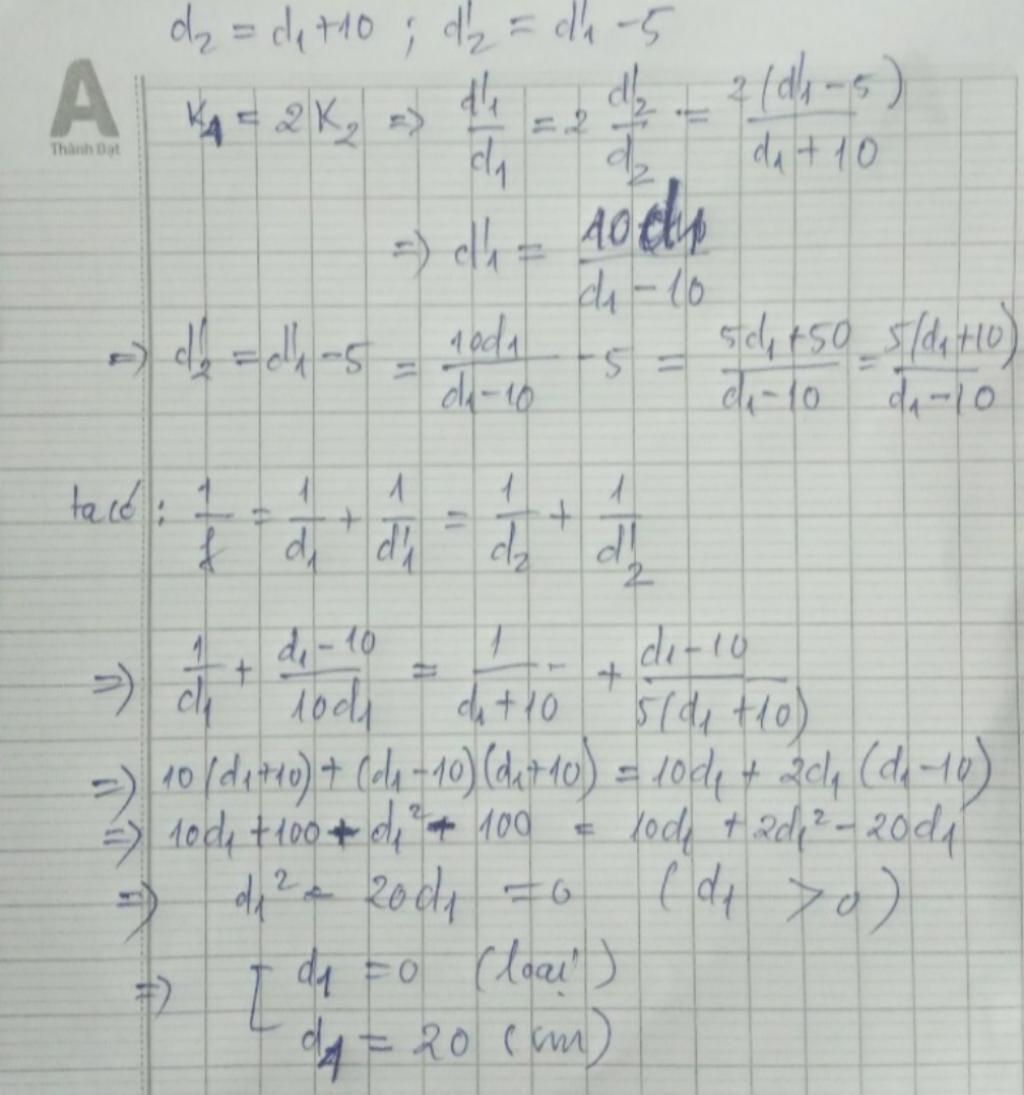 d₂ = d₁ + 10 ; d'₂ = d'₁ - 5
A
Thành Đạt
K₁ = 2K₂ => d'₁/d₁ = 2 d'₂/d₂ = 2(d'₁ - 5)/(d₁ + 10)
=> d'₁ = 10d₁/(d₁ - 10)
=> d'₂ = d'₁ - 5 = 10d₁/(d₁ - 10) - 5 = (5d₁ + 50)/(d₁ - 10) = 5(d₁ + 10)/(d₁ - 10)
ta có : 1/f = 1/d₁ + 1/d'₁ = 1/d₂ + 1/d'₂
=> 1/d₁ + (d₁ - 10)/(10d₁) = 1/(d₁ + 10) + (d₁ - 10)/(5(d₁ + 10))
=> 10(d₁ + 10) + (d₁ - 10)(d₁ + 10) = 10d₁ + 2d₁(d₁ - 10)
=> 10d₁ + 100 + d₁² - 100 = 10d₁ + 2d₁² - 20d₁
=> d₁² - 20d₁ = 0 (d₁ > 0)
=> [ d₁ = 0 (loại)
d₁ = 20 (cm)